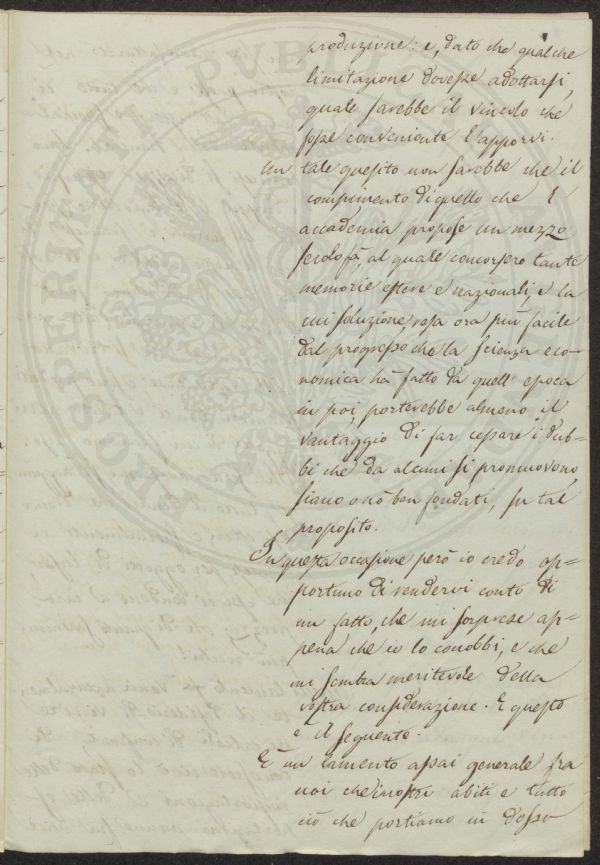 produzione: e, dato che qualche
limitazione dovesse adottarsi,
quale sarebbe il vincolo che
fosse conveniente l'apporvi.
Un tale quesito non sarebbe che il
compimento di quello che l'
accademia propose un mezzo
secolo fà, al quale concorsero tante
memorie estere e nazionali, e la
cui soluzione, resa ora più facile
dal progresso che la scienza eco-
nomica ha fatto da quell'epoca
in poi, porterebbe almeno il
vantaggio di far cessare i dub-
bi che da alcuni si promuovono,
siano o nò ben fondati, su tal
proposito.
In questa occasione però io credo op-
portuno di rendervi conto di
un fatto, che mi sorprese ap-
pena che io lo conobbi, e che
mi sembra meritevole della
vostra considerazione. E questo
è il seguente.
È un lamento assai generale fra
noi che i nostri abiti e tutto
ciò che portiamo in dosso